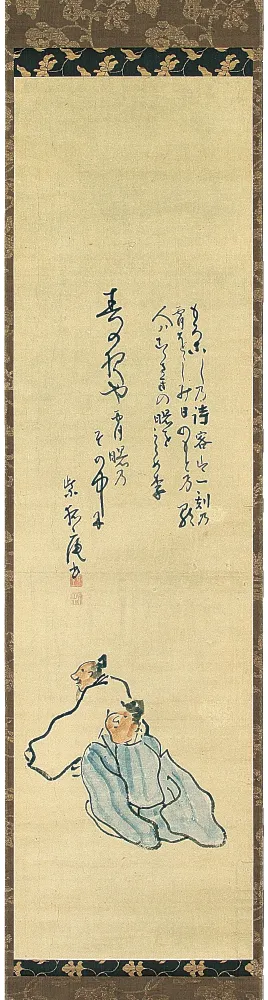 もろこしの詩客は一刻の
宵をゝしみ日のもとの歌
人はむらさきの曙を
春の夜や宵曙の
その中に
紫狐庵書